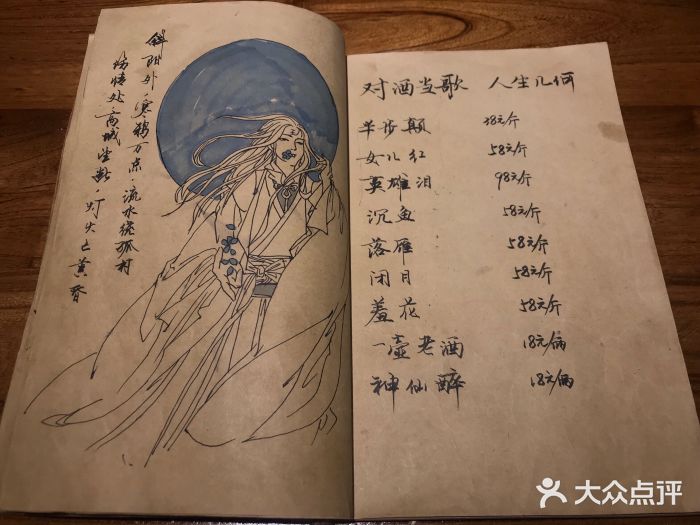 斜阳外·寒鸦万点·流水绕孤村
伤情处·高城望断·灯火已黄昏
对酒当歌 人生几何
半步颠 38元/斤
女儿红 58元/斤
英雄泪 98元/斤
沉鱼 58元/斤
落雁 58元/斤
闭月 58元/斤
羞花 58元/斤
一壶老酒 18元/两
神仙醉 18元/两
大众点评